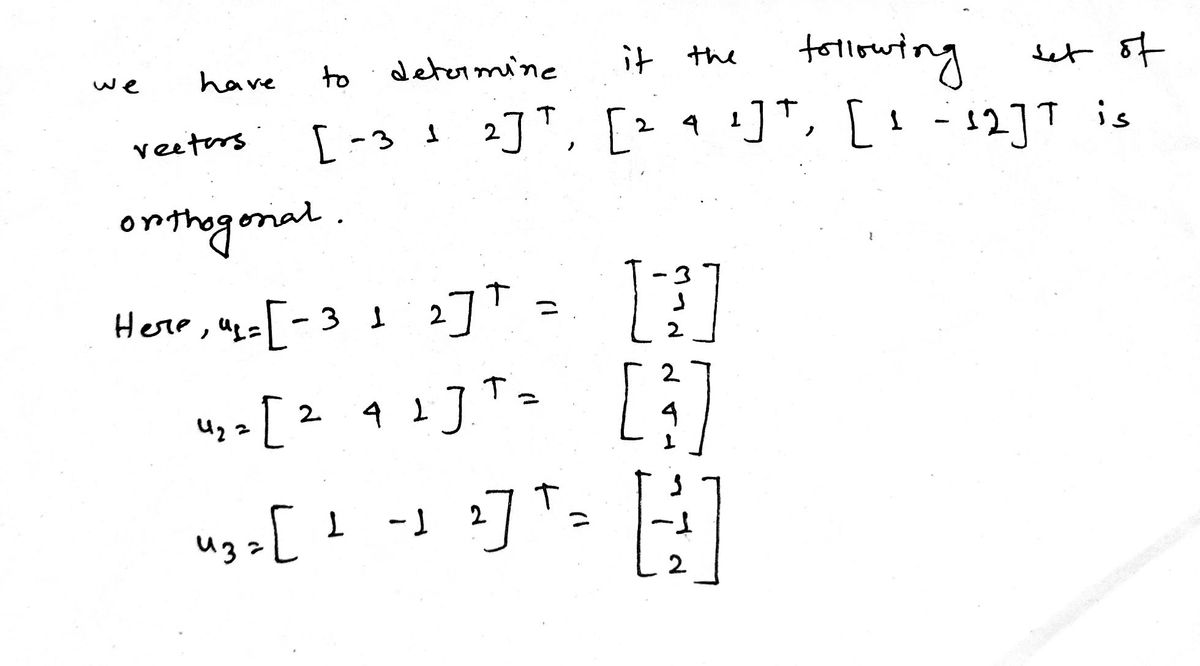 we have to determine if the following set of
vectors [-3 1 2]ᵀ, [2 4 1]ᵀ, [1 -12]ᵀ is
orthogonal.
Here, u₁=[-3 1 2]ᵀ = [-3 1 2]
u₂=[2 4 1]ᵀ= [2 4 1]
u₃=[1 -1 2]ᵀ= [1 -1 2]